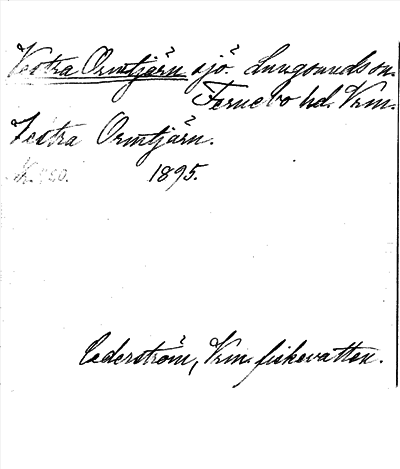 Vestra Ormtjärn sjö. Lungsunds sn.
Fernebo hd. Vrm.
Vestra Ormtjärn.
1895.
Cederström, Vrm. fiskevatten.